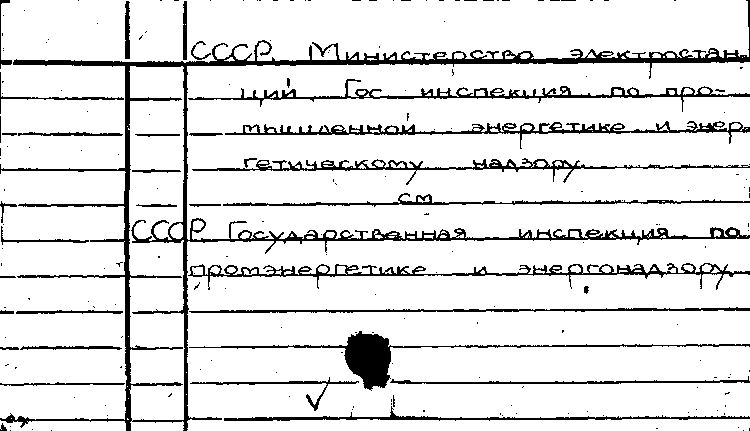 СССР. Министерство электростан-
ций. Гос. инспекция по про-
мышленной энергетике и энер-
гетическому надзору.
см
СССР. Государственная инспекция по
промэнергетике и энергонадзору.